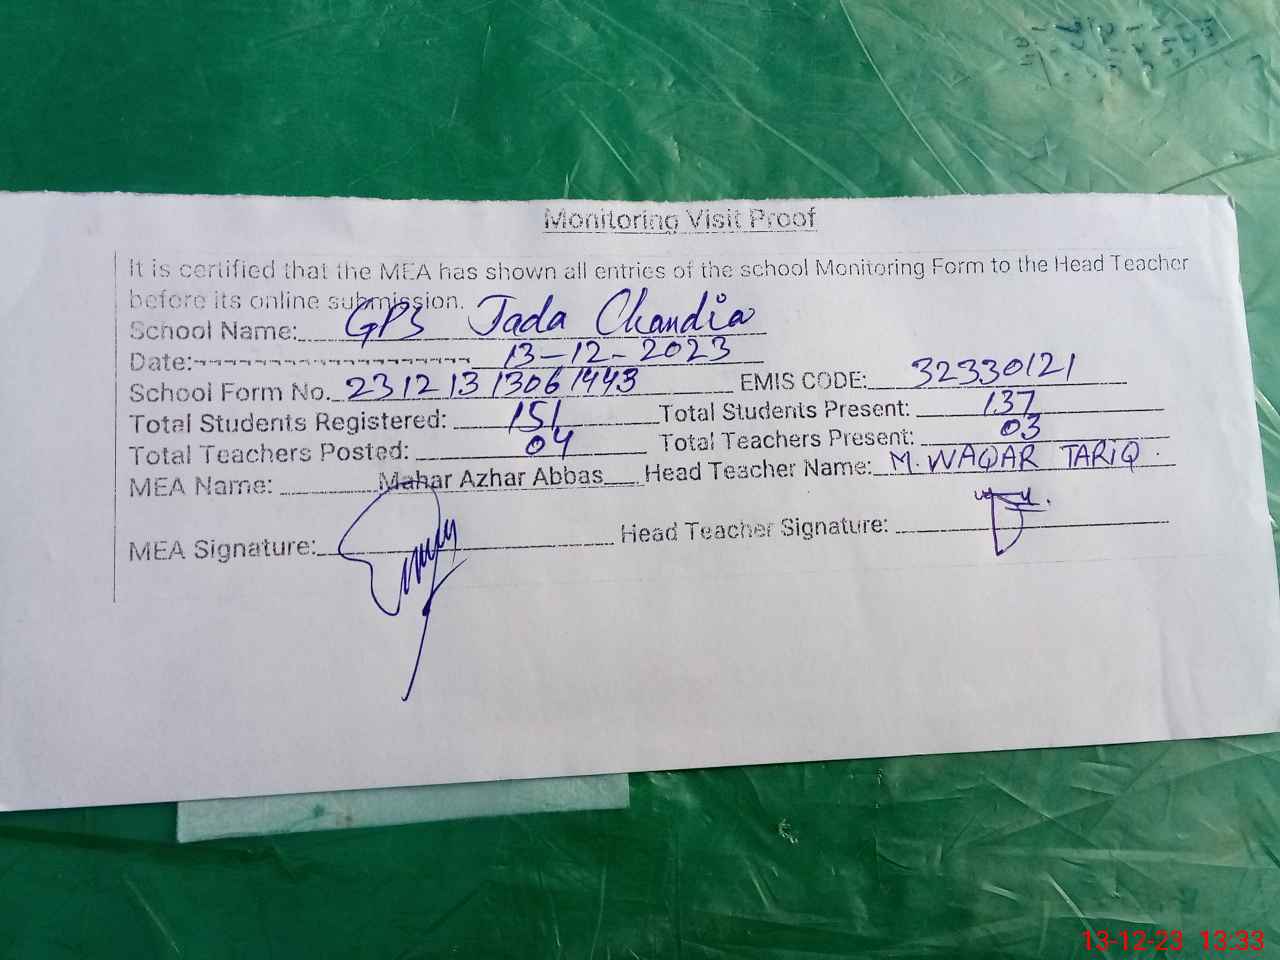 Monitoring Visit Proof
It is certified that the MEA has shown all entries of the school Monitoring Form to the Head Teacher
before its online submission.
School Name: GPS Jada Chandia
Date: 13-12-2023
School Form No. 23121313061443 EMIS CODE: 32330121
Total Students Registered: 151 Total Students Present: 137
Total Teachers Posted: 04 Total Teachers Present: 03
MEA Name: Mahar Azhar Abbas Head Teacher Name: M. WAQAR TARIQ.
MEA Signature: Head Teacher Signature:
13-12-23 13:33